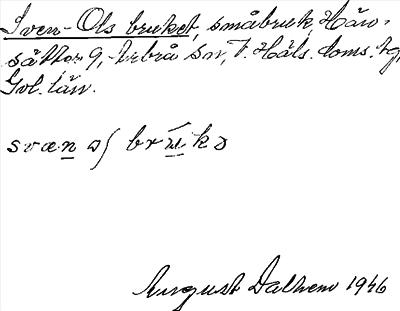 Sven-Ols bruket, småbruk, Hårs-
sätter 9, Arbrå sn, V. Häls. doms. tg,
Gvl. län.
svæn ɷʃ brūkə
August Dalhem 1946